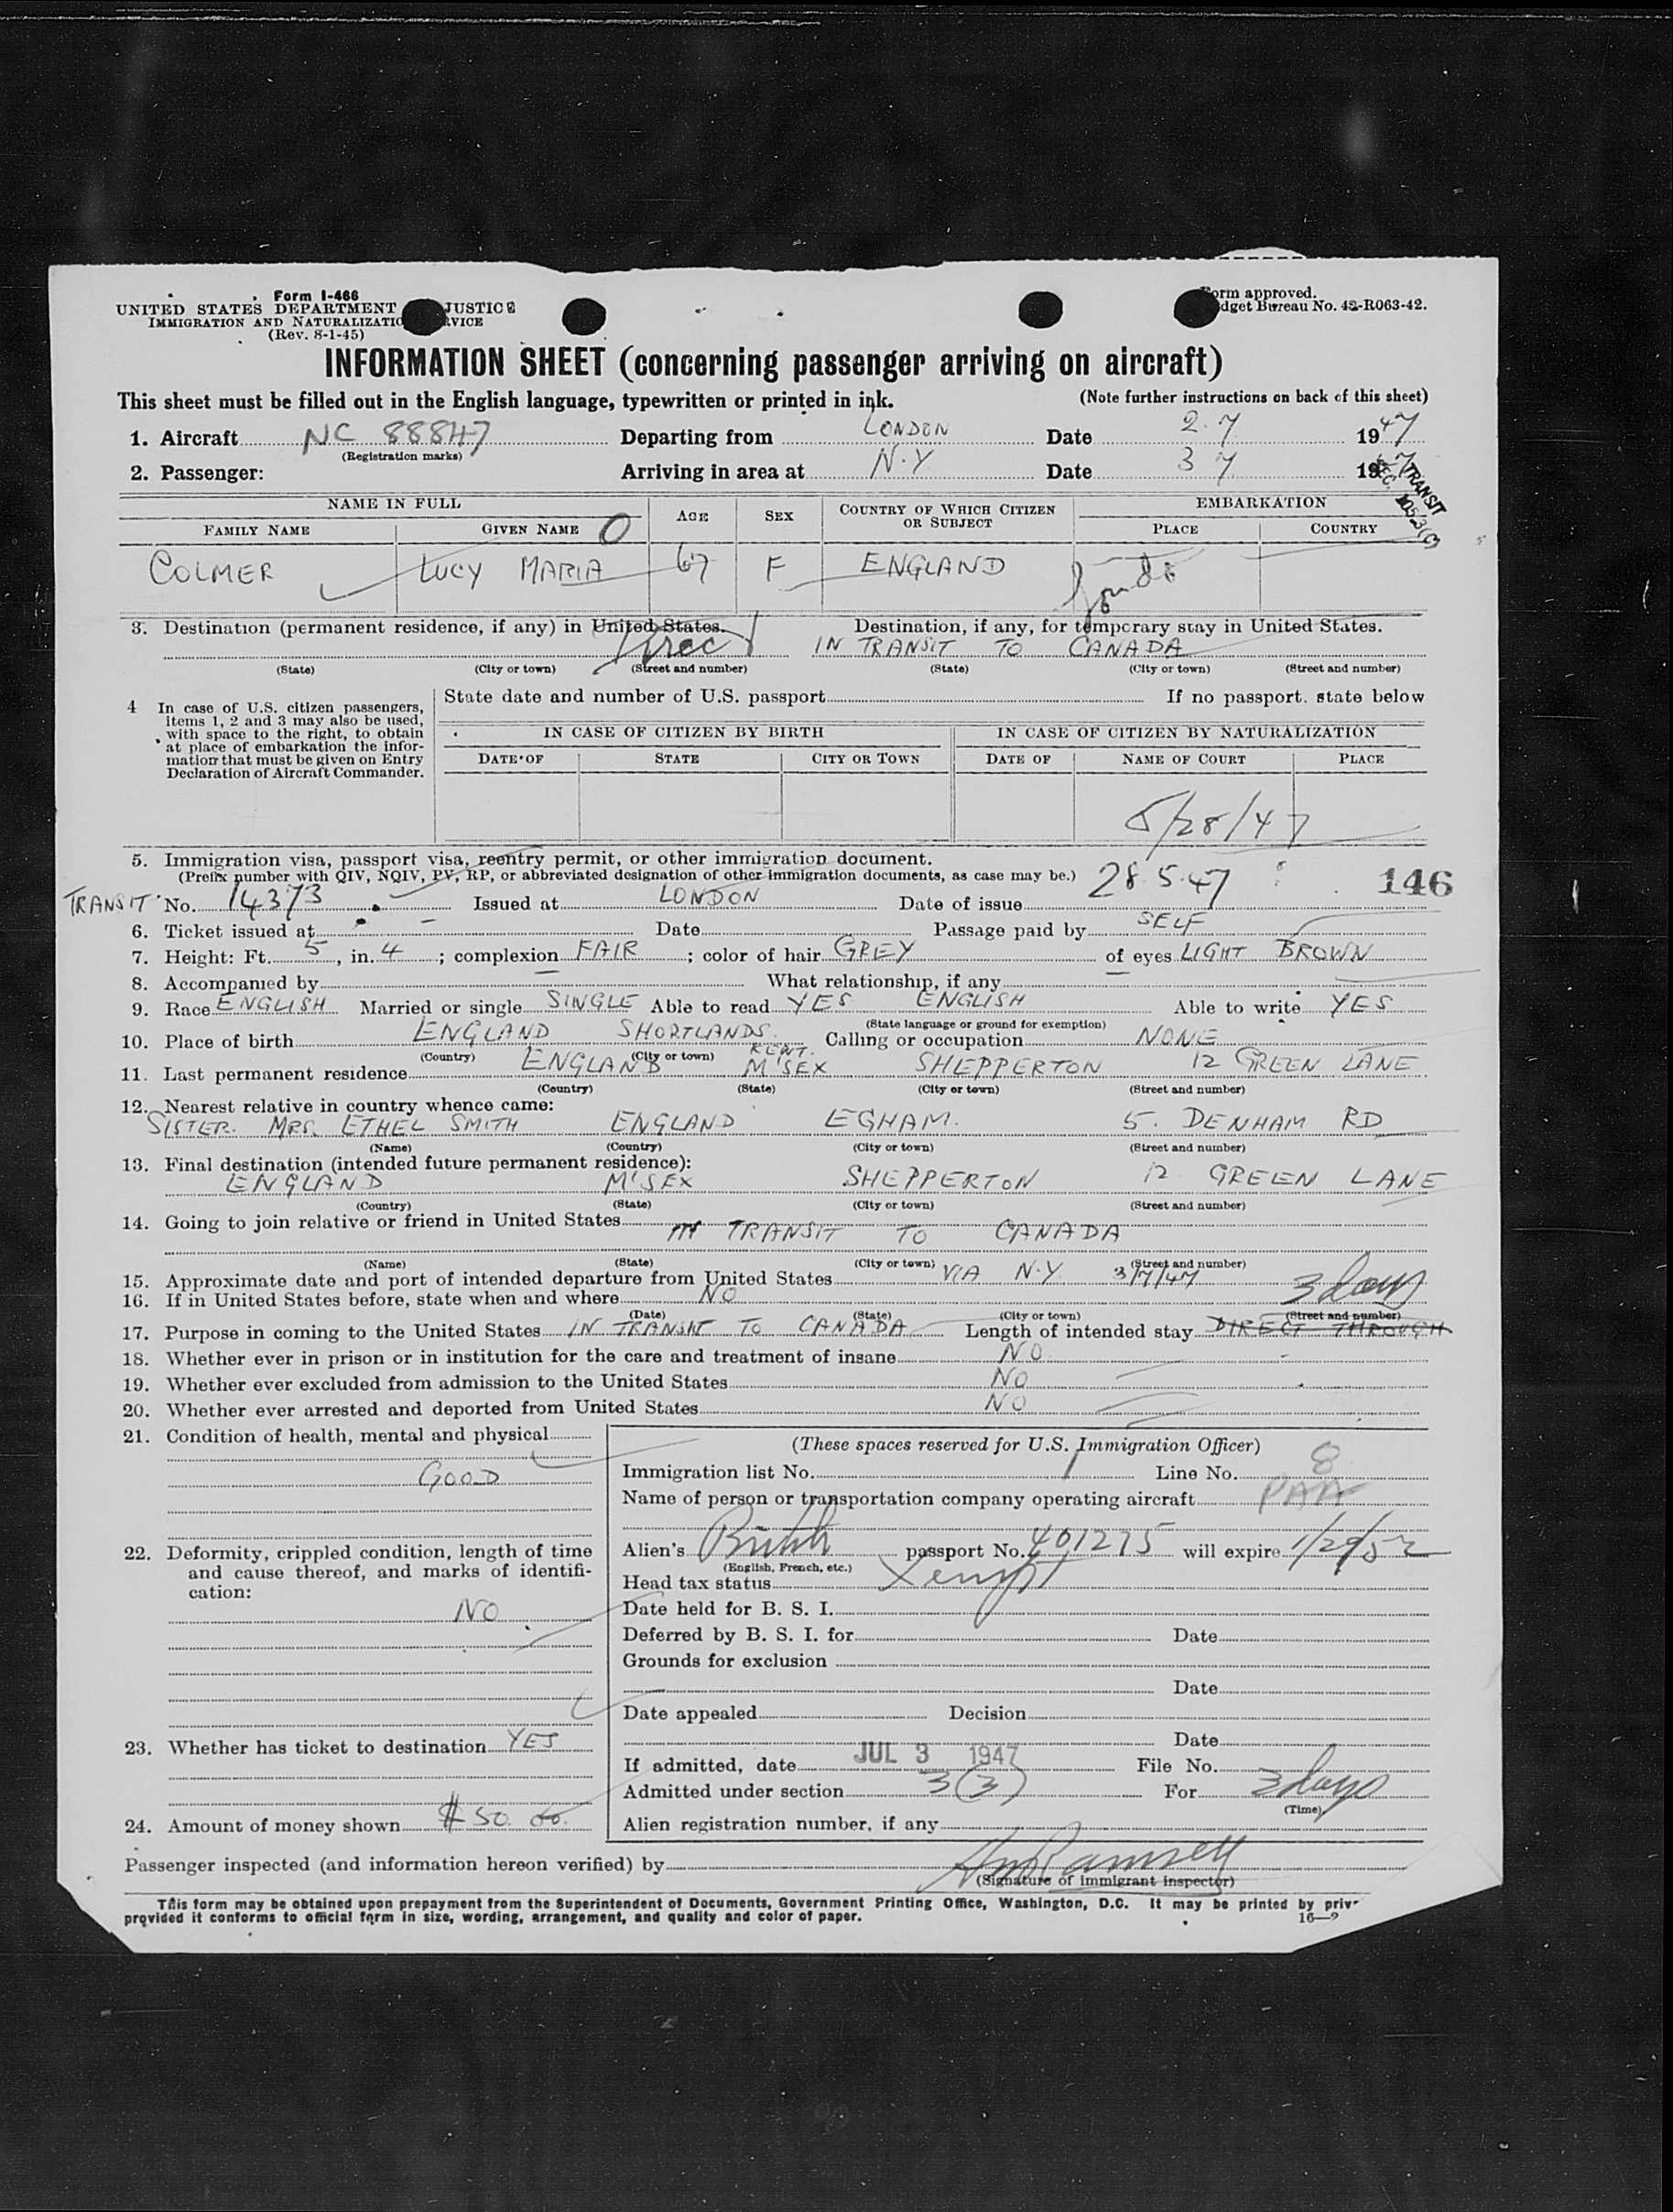 Form I-466
UNITED STATES DEPARTMENT JUSTICE
IMMIGRATION AND NATURALIZATIO RVICE
(Rev. 8-1-45)
orm approved.
dget Bureau No. 42-R063-42.
INFORMATION SHEET (concerning passenger arriving on aircraft)
This sheet must be filled out in the English language, typewritten or printed in ink. (Note further instructions on back of this sheet)
1. Aircraft NC 88847 Departing from LONDON Date 2.7 1947
(Registration marks)
2. Passenger: Arriving in area at N.Y Date 3 7 19
TRANSIT
NAME IN FULL AGE SEX COUNTRY OF WHICH CITIZEN OR SUBJECT EMBARKATION
FAMILY NAME GIVEN NAME O PLACE COUNTRY
COLMER LUCY MARIA 67 F ENGLAND
3. Destination (permanent residence, if any) in United States. Destination, if any, for temporary stay in United States.
IN TRANSIT TO CANADA
(State) (City or town) (Street and number) (State) (City or town) (Street and number)
4 In case of U.S. citizen passengers, items 1, 2 and 3 may also be used, with space to the right, to obtain at place of embarkation the information that must be given on Entry Declaration of Aircraft Commander.
State date and number of U.S. passport If no passport, state below
IN CASE OF CITIZEN BY BIRTH IN CASE OF CITIZEN BY NATURALIZATION
DATE OF STATE CITY OR TOWN DATE OF NAME OF COURT PLACE
5/28/47
5. Immigration visa, passport visa, reentry permit, or other immigration document.
(Prefix number with QIV, NQIV, PV, RP, or abbreviated designation of other immigration documents, as case may be.)
TRANSIT No. 14373 Issued at LONDON Date of issue 28.5.47 146
6. Ticket issued at Date Passage paid by SELF
7. Height: Ft. 5, in. 4; complexion FAIR; color of hair GREY of eyes LIGHT BROWN
8. Accompanied by What relationship, if any
9. Race ENGLISH Married or single SINGLE Able to read YES ENGLISH Able to write YES
(State language or ground for exemption)
10. Place of birth ENGLAND SHORTLANDS KENT. Calling or occupation NONE
(Country) (City or town)
11. Last permanent residence ENGLAND M'SEX SHEPPERTON 12 GREEN LANE
(Country) (State) (City or town) (Street and number)
12. Nearest relative in country whence came:
SISTER. MRS. ETHEL SMITH ENGLAND EGHAM. 5. DENHAM RD
(Name) (Country) (City or town) (Street and number)
13. Final destination (intended future permanent residence):
ENGLAND M'SEX SHEPPERTON 12 GREEN LANE
(Country) (State) (City or town) (Street and number)
14. Going to join relative or friend in United States IN TRANSIT TO CANADA
(Name) (State) (City or town) (Street and number)
15. Approximate date and port of intended departure from United States VIA N.Y 3/7/47
16. If in United States before, state when and where NO 3 days
(Date) (State) (City or town) (Street and number)
17. Purpose in coming to the United States IN TRANSIT TO CANADA Length of intended stay DIRECT THROUGH
18. Whether ever in prison or in institution for the care and treatment of insane NO
19. Whether ever excluded from admission to the United States NO
20. Whether ever arrested and deported from United States NO
21. Condition of health, mental and physical
GOOD
22. Deformity, crippled condition, length of time and cause thereof, and marks of identification:
NO
23. Whether has ticket to destination YES
24. Amount of money shown $50.00.
(These spaces reserved for U.S. Immigration Officer)
Immigration list No. 1 Line No. 8
Name of person or transportation company operating aircraft PAA
Alien's British passport No. 401275 will expire 1/29/52
(English, French, etc.)
Head tax status Xempt
Date held for B. S. I.
Deferred by B. S. I. for Date
Grounds for exclusion
Date
Date appealed Decision
Date
If admitted, date JUL 3 1947 File No.
Admitted under section 3(3) For 3 days
(Time)
Alien registration number, if any
Passenger inspected (and information hereon verified) by
(Signature of immigrant inspector)
This form may be obtained upon prepayment from the Superintendent of Documents, Government Printing Office, Washington, D.C. It may be printed by priv
provided it conforms to official form in size, wording, arrangement, and quality and color of paper. 16—